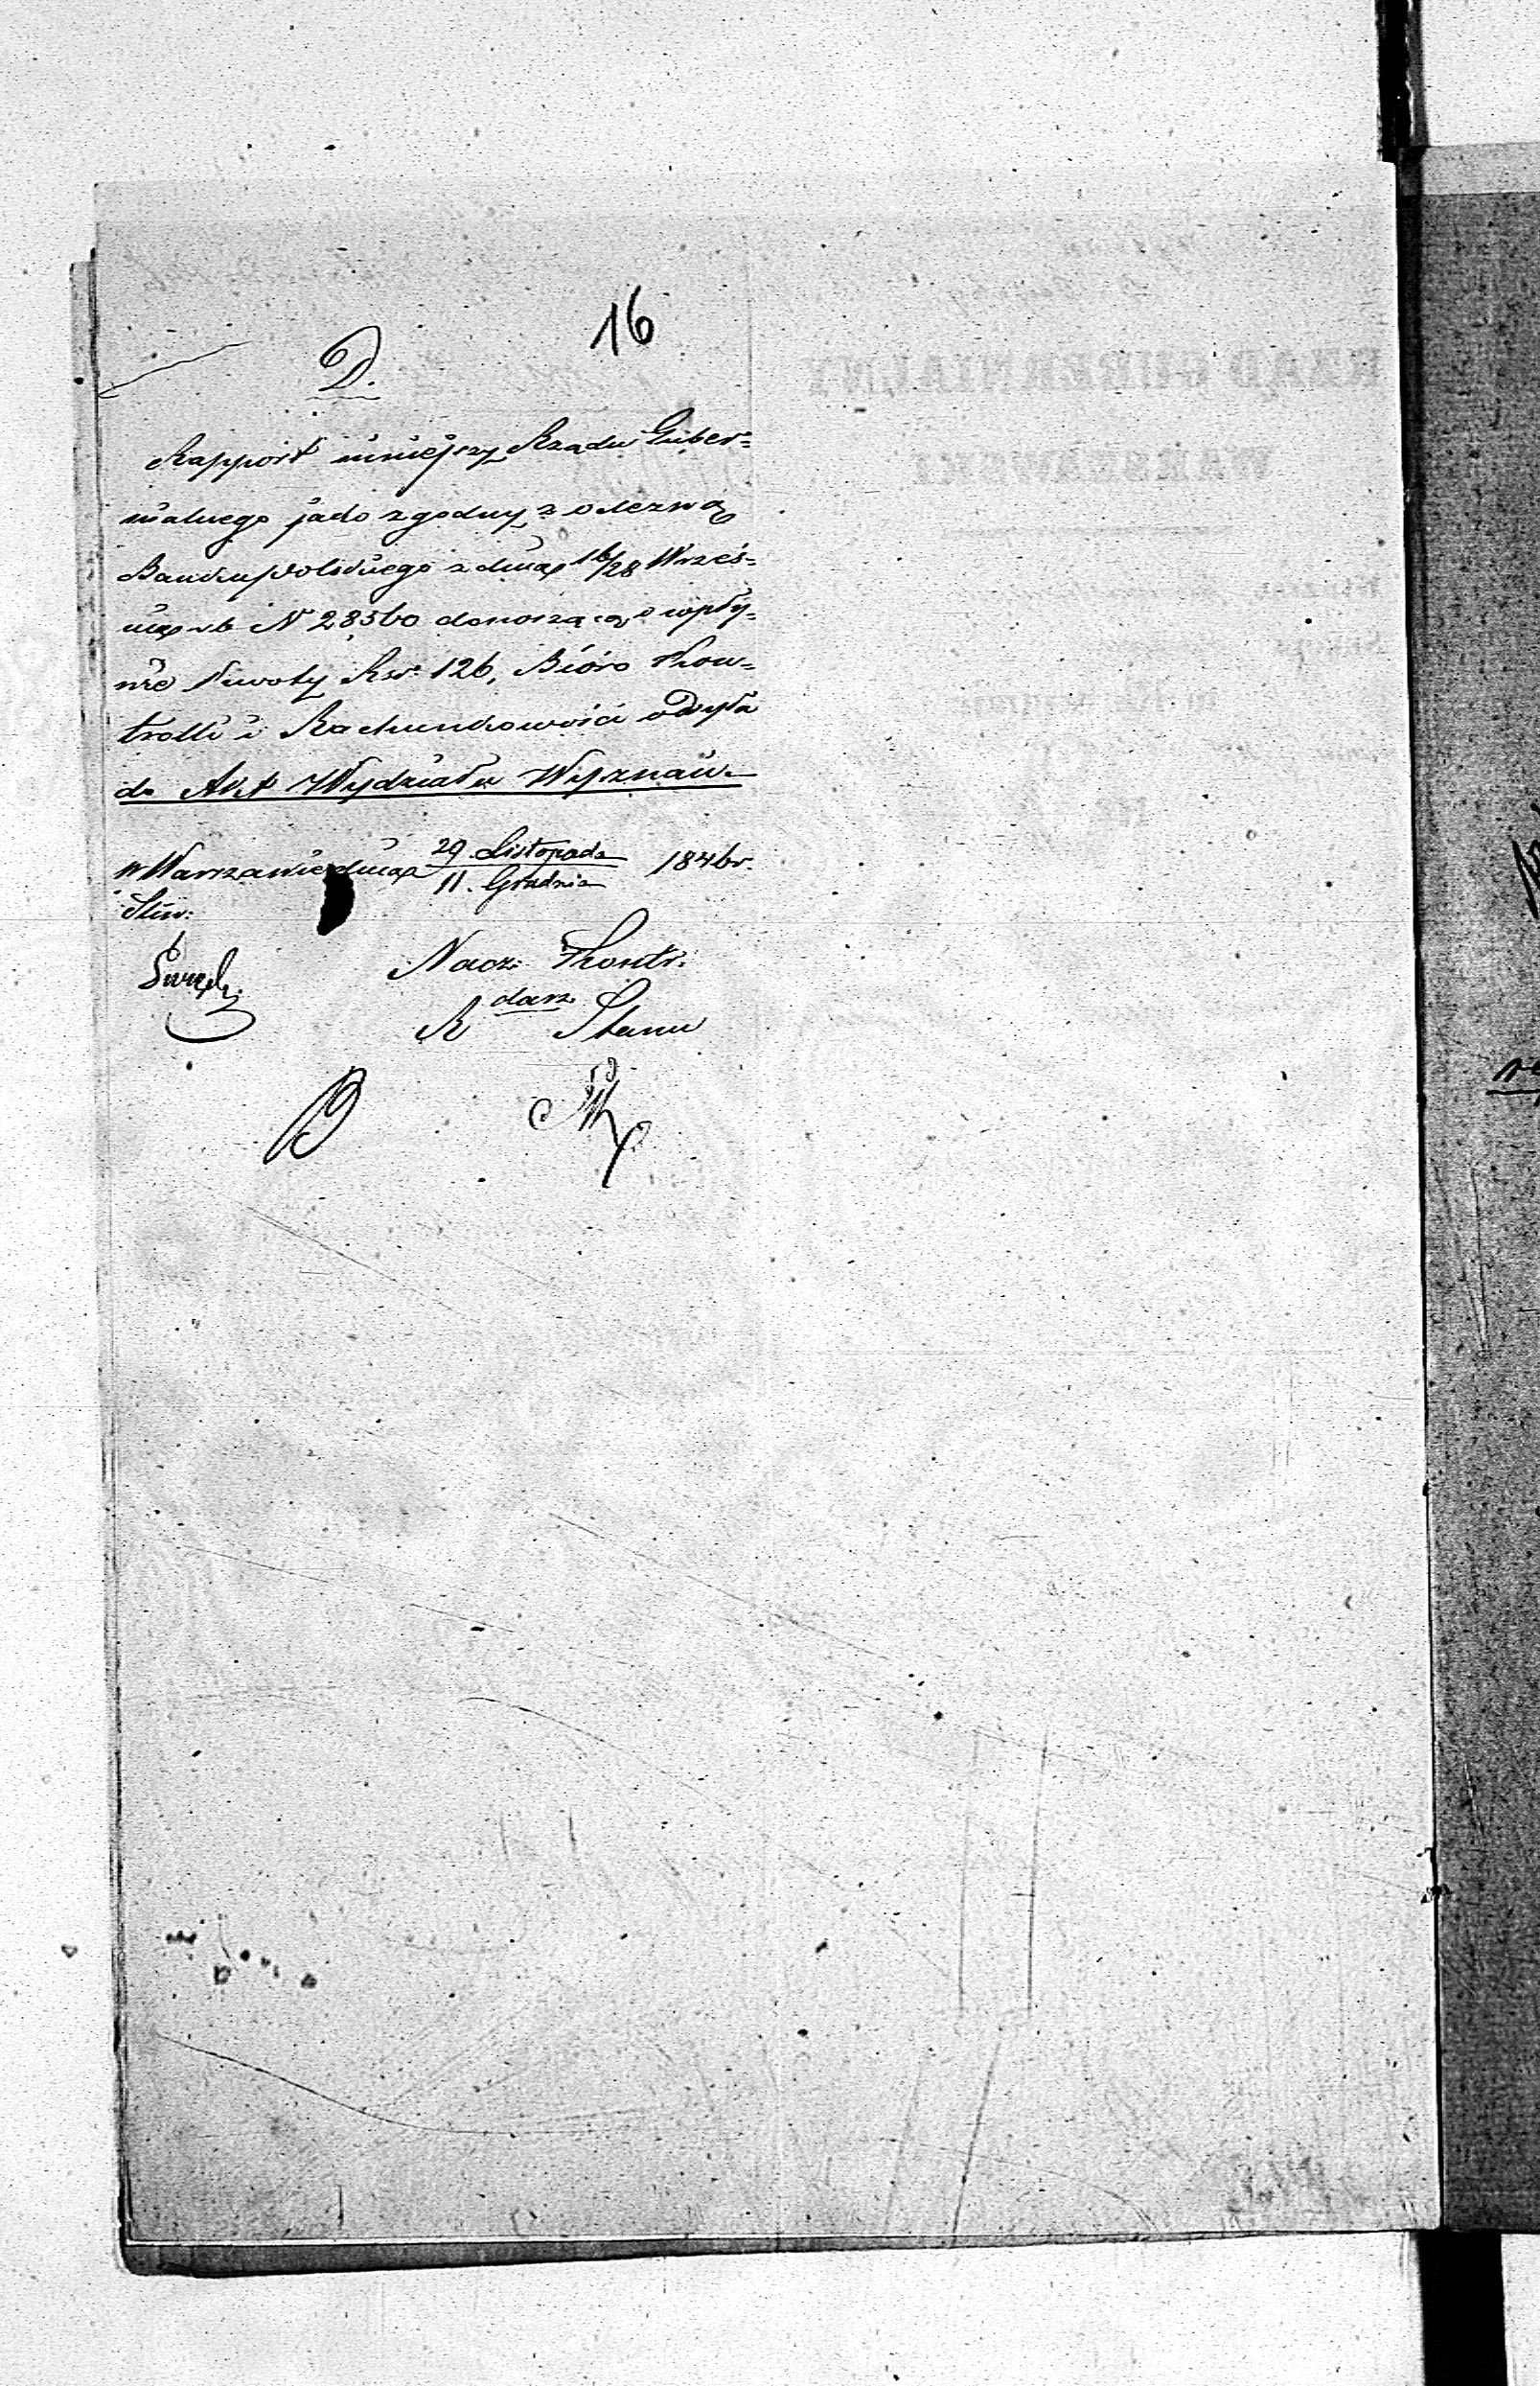 16
D.
Rapport niniejszy Rządu Guber=
nialnego jako zgodny z odezwą
Banku Polskiego z dnia 16/28 Wrześ=
nia rb N 28360 donoszącą o wpły=
nie kwoty Rsr. 126, Bióro Kon=
trolli i Rachunkowości odsyła
do Akt Wydziału Wyznań.
w Warszawie dnia 29 Listopada / 11. Grudnia 1846 r.
Nacz: Kontr.
R darz Stanu
RZĄD GUBERNIALNY
WARSZAWSKI